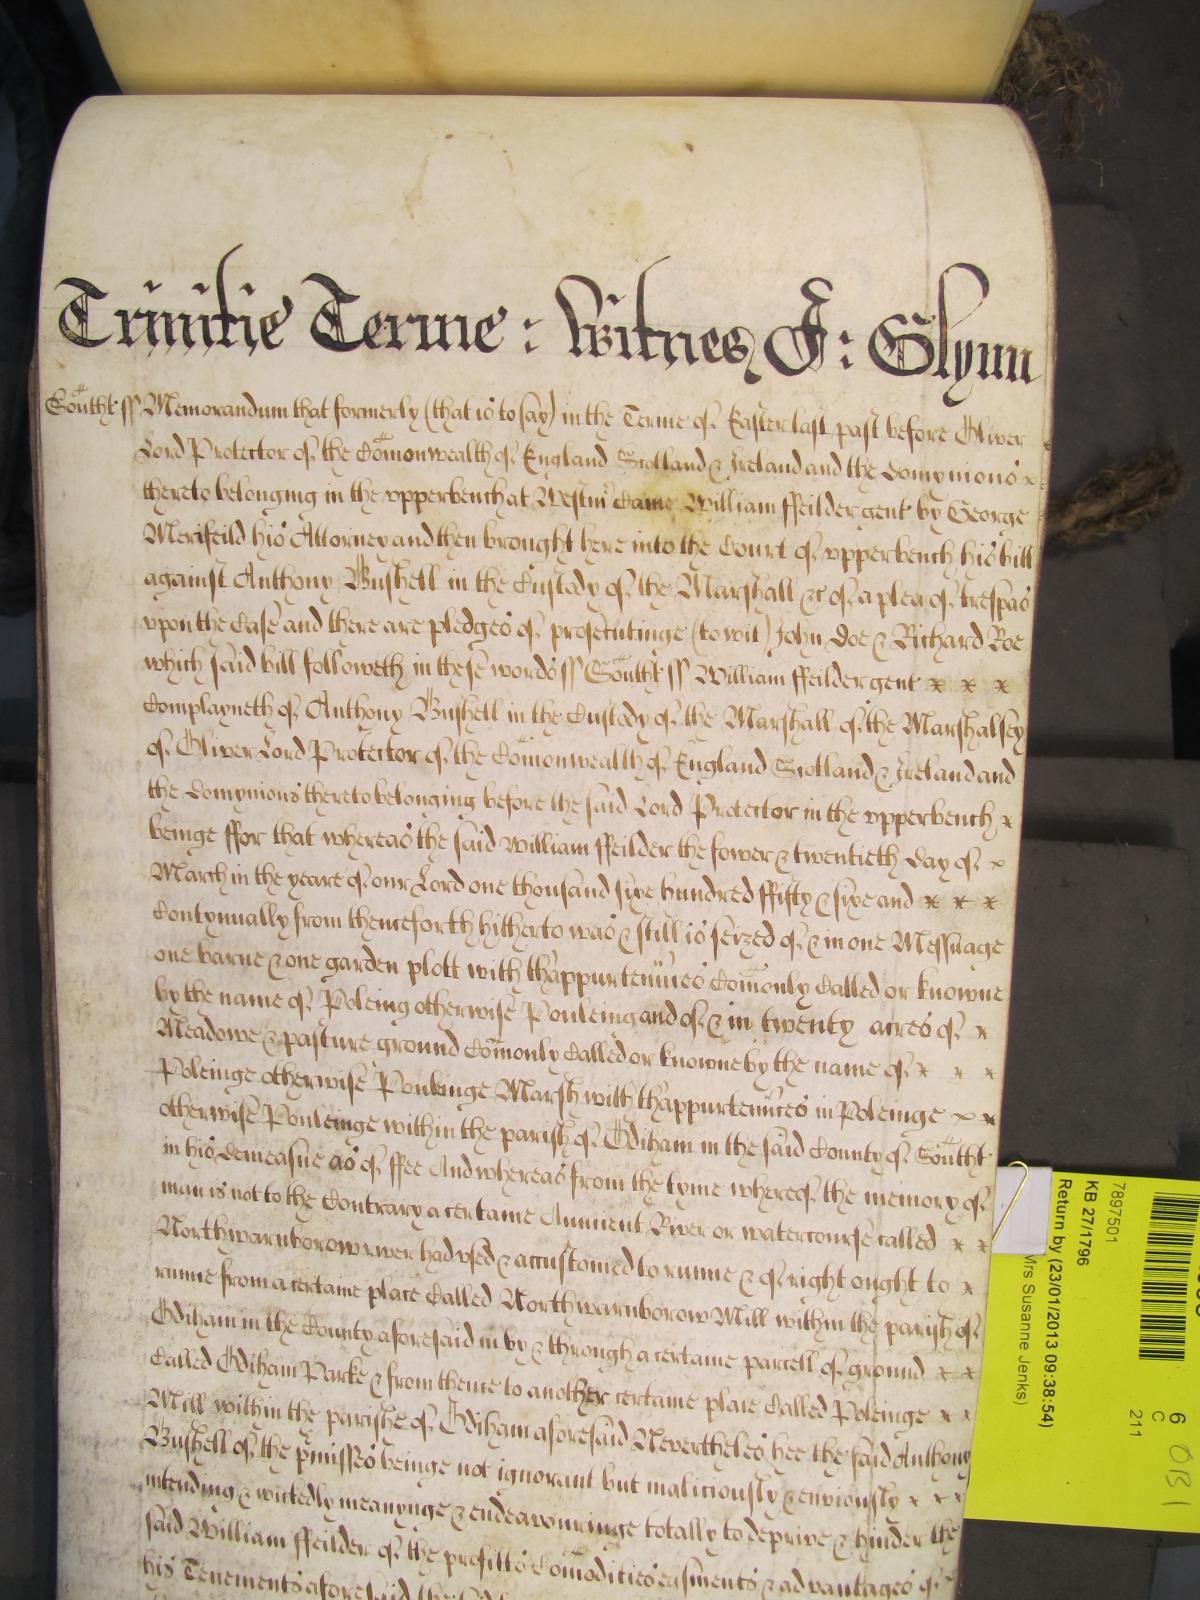 Trinitie Terme : Witnes J : Glynn
Southt ss Memorandum that formerly (that is to say) in the Terme of Easter last past before Oliver
Lord Protector of the Comonwealth of England Scotland & Ireland and the Domynions x
thereto belonging in the upperbench at Westm Came William ffeilder gent by George
Merifeild his Attorney and then brought here into the Court of upperbench his bill
against Anthony Bushell in the Custody of the Marshall &c of a plea of trespas
upon the Case and there are pledges of prosecutinge (to wit) John Doe & Richard Roe
which said bill followeth in these words ss Southt ss William ffeilder gent x x x
Complayneth of Anthony Bushell in the Custody of the Marshall of the Marshalsey
of Oliver Lord Protector of the Comonwealth of England Scotland & Ireland and
the Domynions thereto belonging before the said Lord Protector in the upperbench x
beinge ffor that whereas the said William ffeilder the fower & twentieth day of x
March in the yeare of our Lord one thousand sixe hundred ffifty & sixe and x x x
Contynually from thenceforth hitherto was & still is seized of & in one Messuage
one barne & one garden plott with thappurtennces Comonly Called or knowne
by the name of Poleing otherwise Pouleing and of & in twenty acres of x
Meadowe & pasture ground Comonly Called or knowne by the name of x x x
Poleinge otherwise Pouleinge Marsh with thappurtennces in Poleinge x x
otherwise Pouleinge within the parish of Odiham in the said County of Southt
in his demeasne as of ffee And whereas from the tyme whereof the memory of
man is not to the Contrary a certaine Auncient River or watercourse called x x
Northwarnborow river had used & accustomed to runne & of right ought to x
runne from a certaine place Called Northwarnborow Mill within the parish of
Odiham in the County aforesaid in by & through a certaine parcell of ground x x
Called Odiham Parke & from thence to another certaine place Called Poleinge x x
Mill within the parishe of Odiham aforesaid Neverthelес hee the said Anthony
Bushell of the pmisses beinge not ignorant but maliciously & enviously x x x
intending & wickedly meanynge & endeavouringe totally to deprive & hinder the
said William ffeilder of the profitts Comodities easments & advantages of
his Tenements aforesaid
7897501
KB 27/1796
Return by (23/01/2013 09:38:54)
Mrs Susanne Jenks)
6
C
211